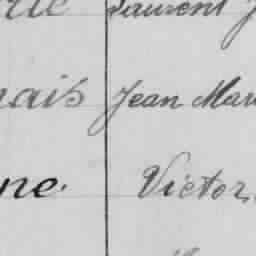 Laurent
nais Jean Mar
ne. Victor,